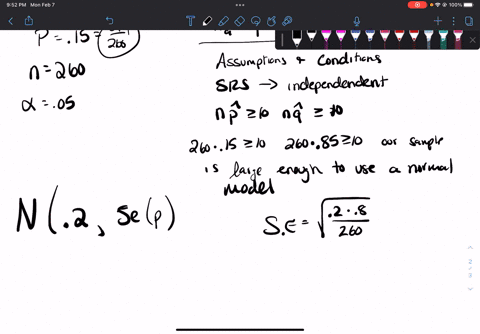 9:52 PM Mon Feb 7
100%
p̂ = .15 = /260
n = 260
α = .05
Assumptions & Conditions
SRS → independent
n p̂ ≥ 10 n q̂ ≥ 10
260 · .15 ≥ 10 260 · .85 ≥ 10 our sample
is large enough to use a normal
model
N( .2 , Se(p)
S.E = √ .2 · .8 / 260
2
3